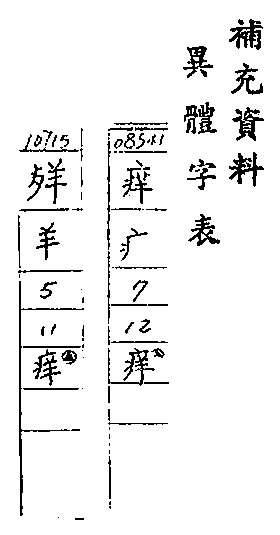 補充資料
異體字表
痒
疒
7
12
痒
10715
羊
5
11
痒